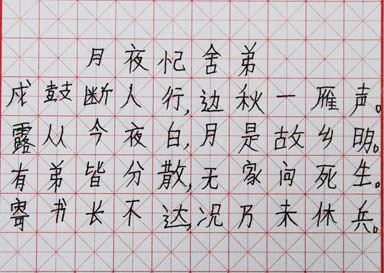 月夜忆舍弟
戍鼓断人行,边秋一雁声。
露从今夜白,月是故乡明。
有弟皆分散,无家问死生。
寄书长不达,况乃未休兵。